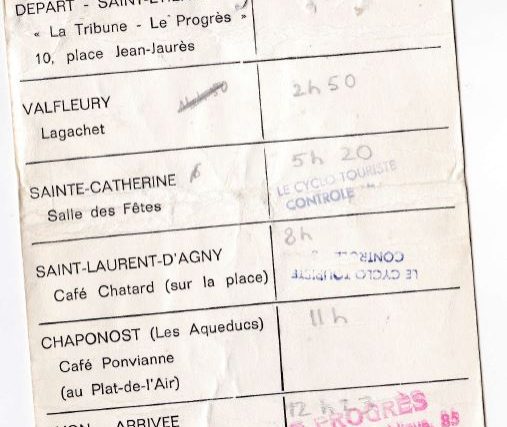 DEPART - SAINT-ETIENNE
« La Tribune - Le Progrès »
10, place Jean-Jaurès
VALFLEURY
Lagachet
2h 50
SAINTE-CATHERINE
Salle des Fêtes
5h 20
LE CYCLO TOURISTE
CONTROLE
SAINT-LAURENT-D'AGNY
Café Chatard (sur la place)
8h
LE CYCLO TOURISTE
CONTROLE
CHAPONOST (Les Aqueducs)
Café Ponvianne
(au Plat-de-l'Air)
11h
ARRIVEE
12h
PROGRÈS
85